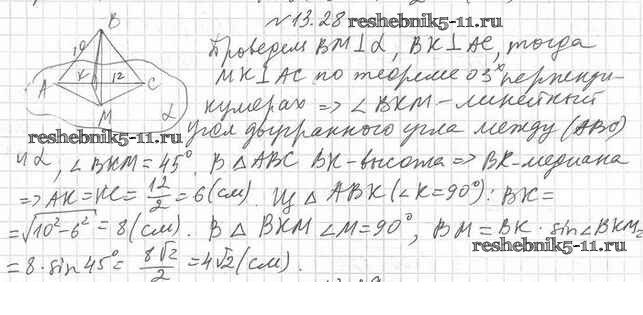 №13.28 reshebnik5-11.ru
B
10
K 12
A C
M α
Проведем BM⊥α, BK⊥AC, тогда
MK⊥AC по теореме о 3ˣ перпенди-
кулярах => ∠BKM - линейный
reshebnik5-11.ru
угол двугранного угла между (ABC)
и α, ∠BKM = 45°. В △ABC BK-высота => BK-медиана
=> AK = KC = 12/2 = 6 (см). Из △ABK (∠K=90°): BK =
= √10²-6² = 8 (см). В △BKM ∠M=90°, BM = BK · sin∠BKM =
reshebnik5-11.ru
= 8 · sin 45° = 8√2/2 = 4√2 (см).